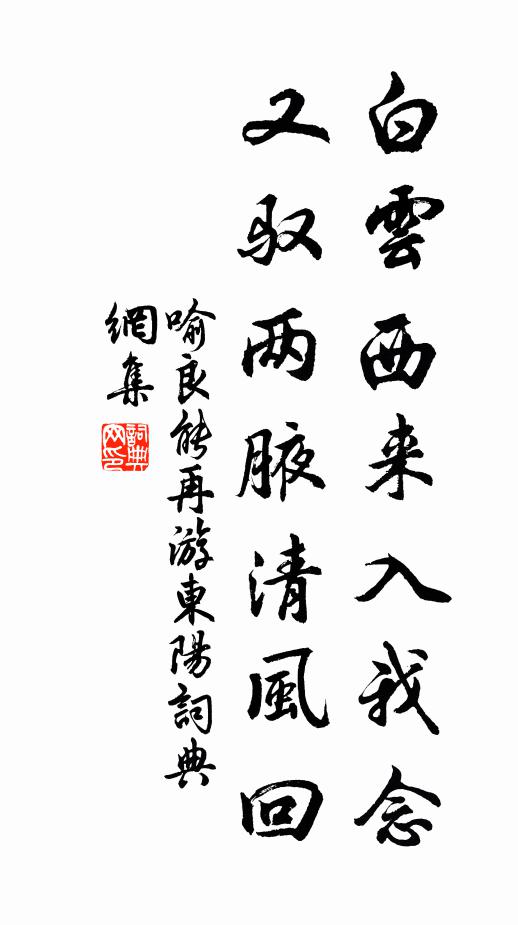 白雲西来入我念
又驭两腋清風回
喻良能再游東陽詞典
網集
詞典網印